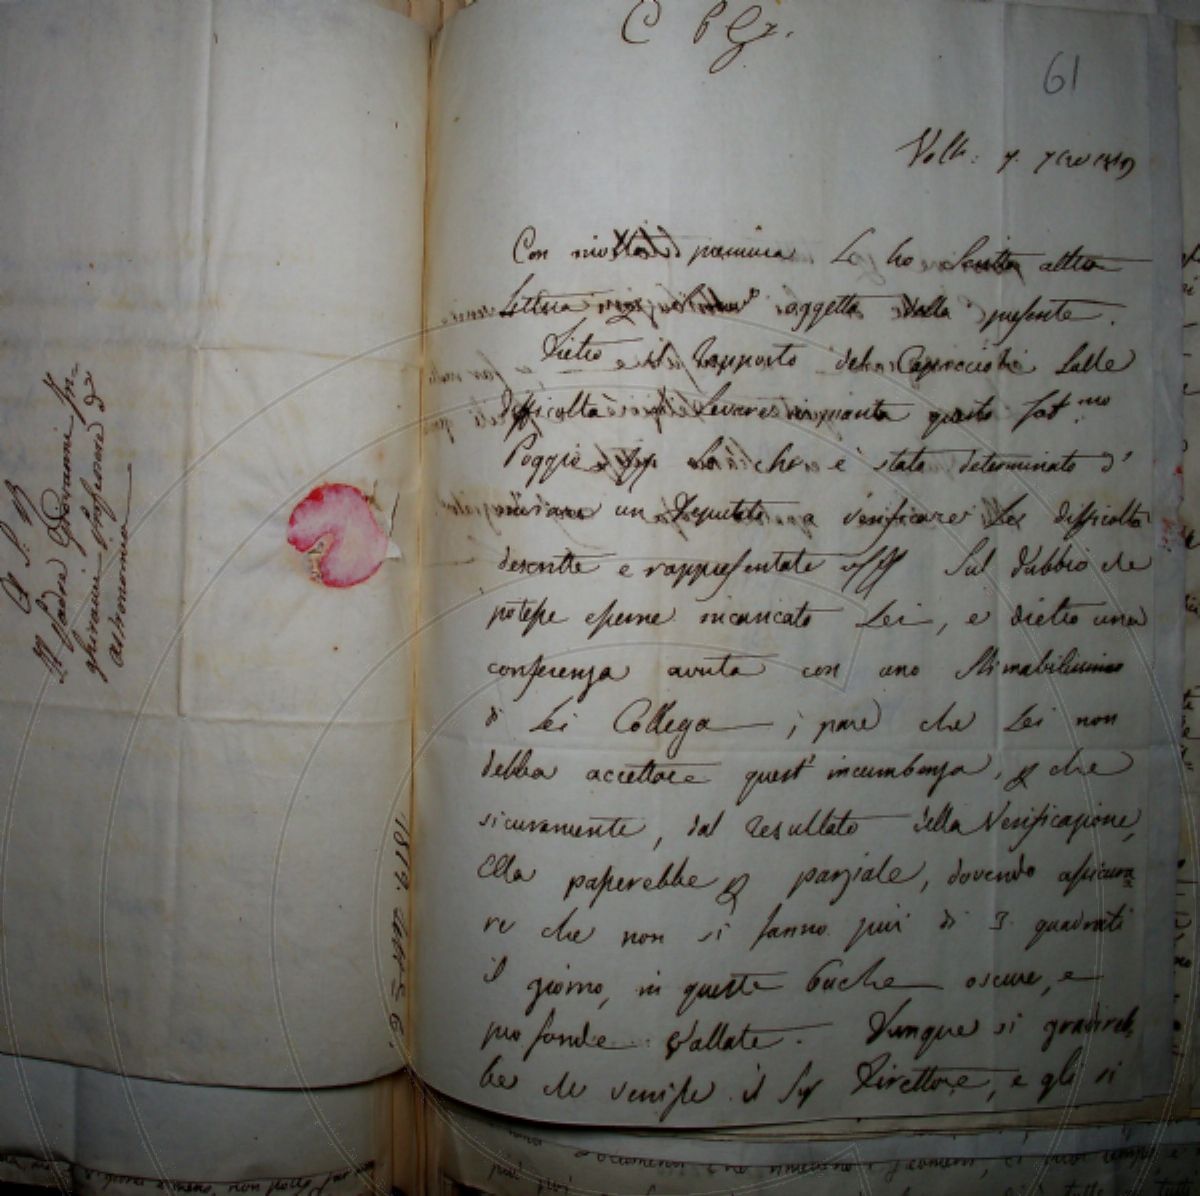 C P Gr.
61
Volt: 7. 7cre 1819
Con molta premura Le ho scritta altra
Lettera oggetto della presente.
Dietro il rapporto del Capriccioli sulle
difficoltà levare in pianta questo fat.mo
Poggio so che è stato determinato d'
inviare un Deputato a verificare le difficoltà
descritte e rappresentate Sul dubbio che
potesse esserne incaricato Lei, e dietro una
conferenza avuta con uno Stimabilissimo
di Lei Collega, pare che Lei non
debba accettare quest' incumbenza, che
sicuramente, dal resultato della Verificazione,
Ella passerebbe parziale, dovendo assicura
re che non si fanno più di 3 quadrati
il giorno, in queste buche oscure, e
profonde Vallate. Dunque si gradireb
be che venisse il Sig Direttore, e gli si
A. S. R.
Il Padre Giovanni In-
ghirami professore d'
astronomia
1819. 7bre